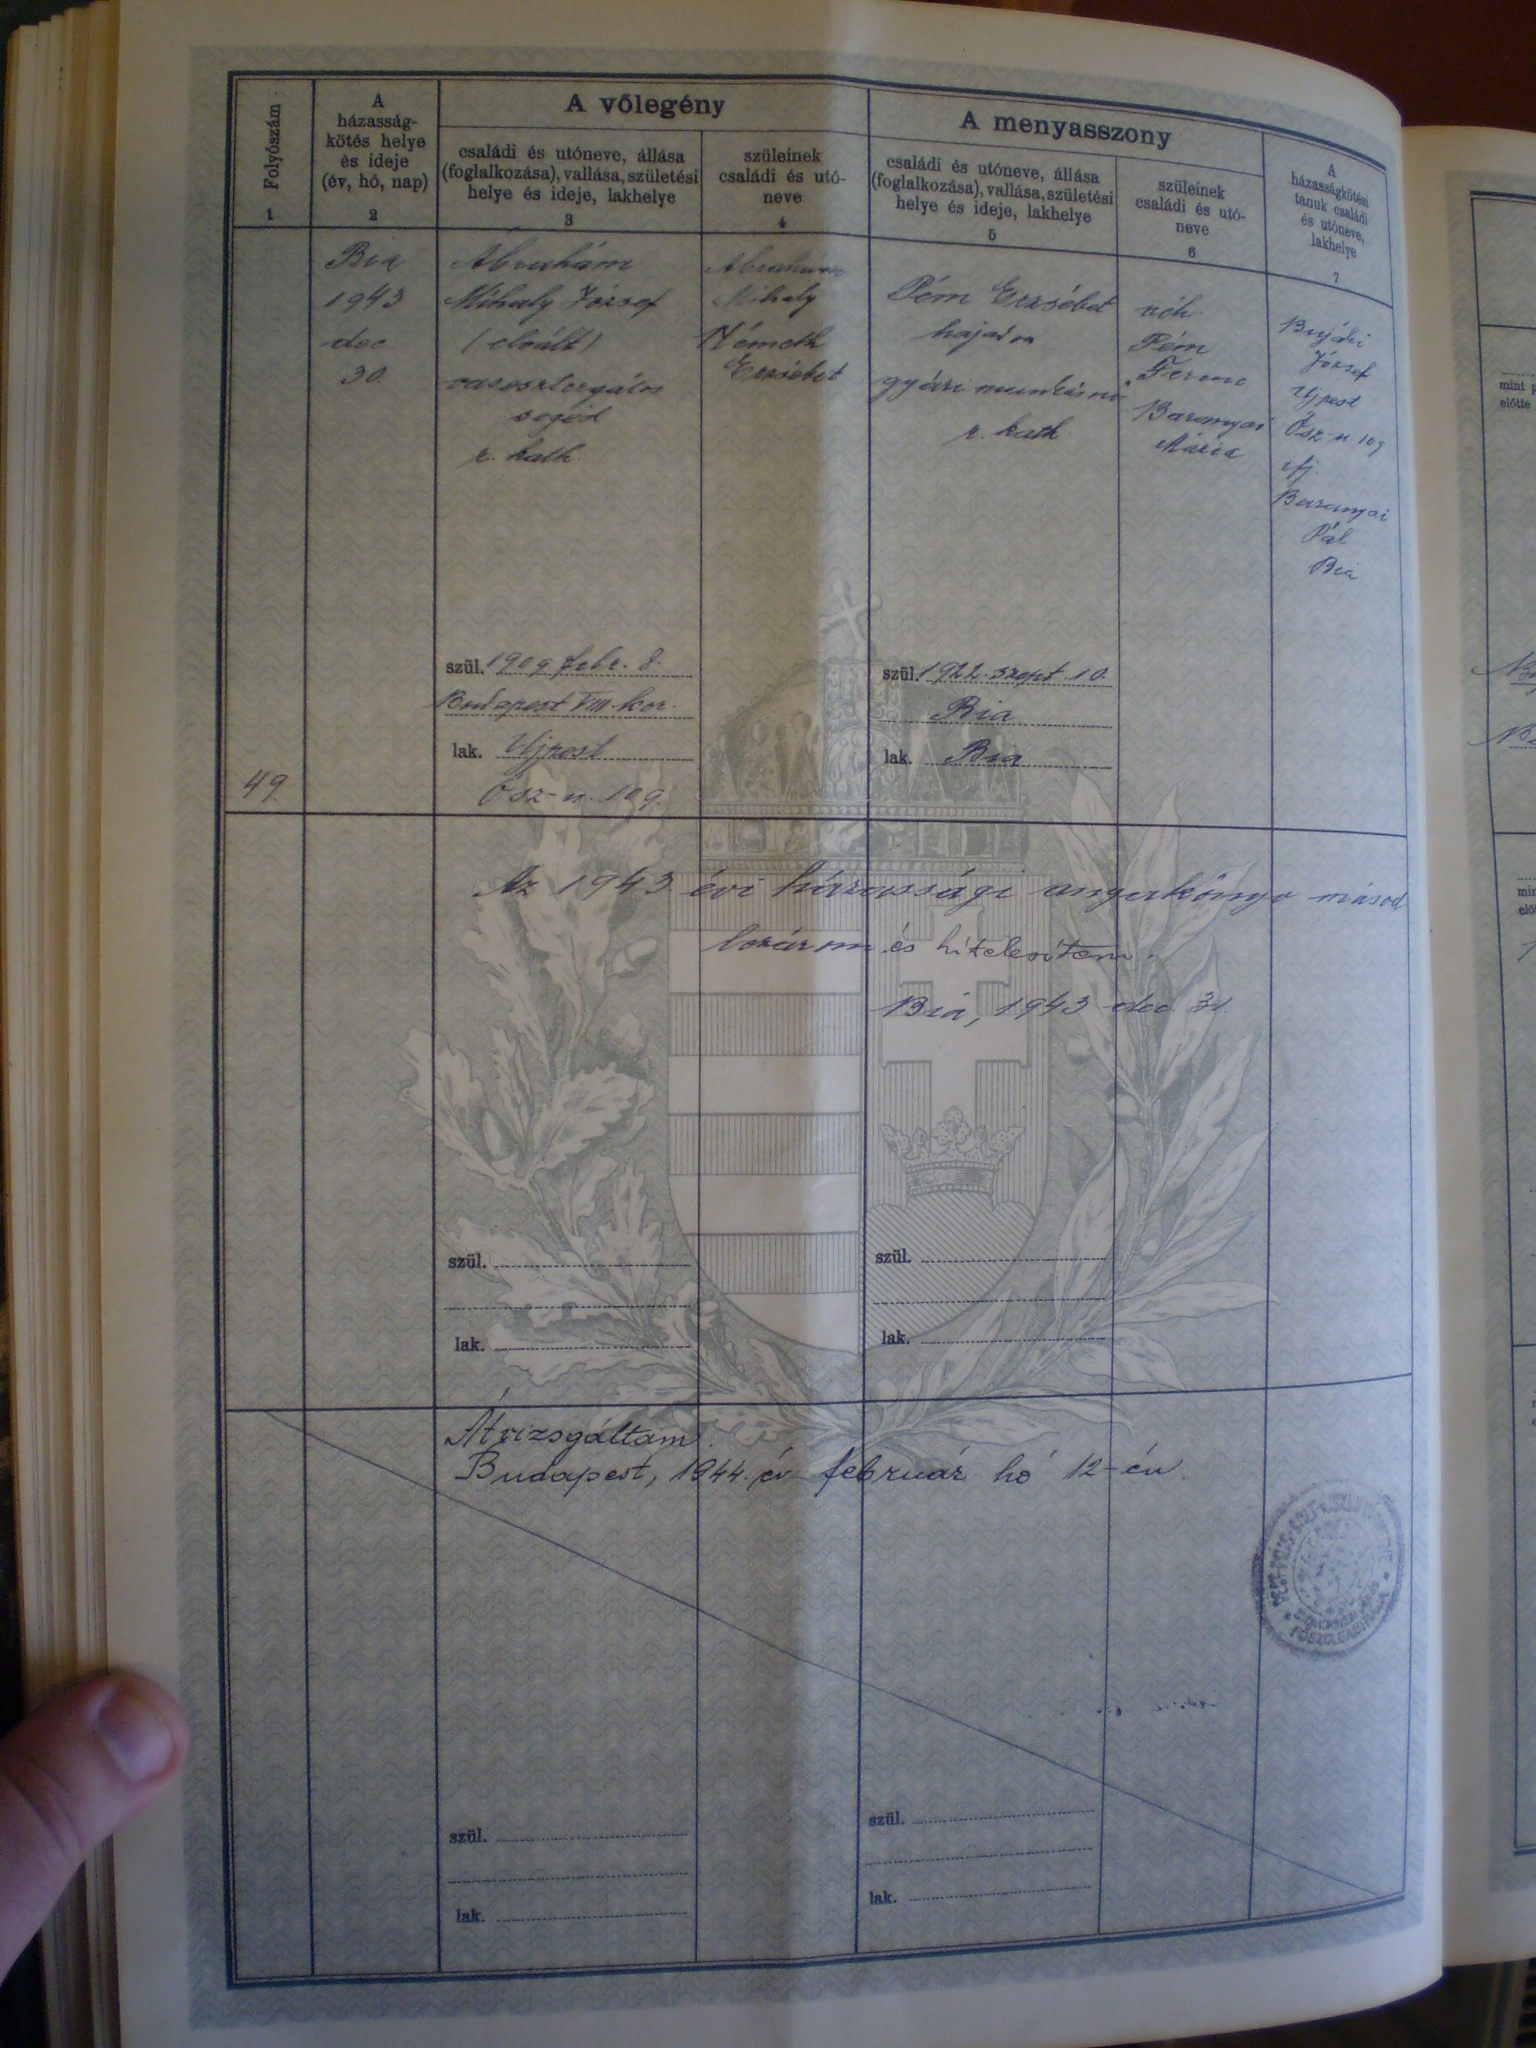 A vőlegény
A menyasszony
Folyószám
A
házasság-
kötés helye
és ideje
(év, hó, nap)
családi és utóneve, állása
(foglalkozása), vallása, születési
helye és ideje, lakhelye
szüleinek
családi és utó-
neve
családi és utóneve, állása
(foglalkozása), vallása, születési
helye és ideje, lakhelye
szüleinek
családi és utó-
neve
A
házasságkötési
tanuk családi
és utóneve,
lakhelye
1
2
3
4
5
6
7
49.
Bia
1943
dec.
30.
Ábrahám
Mihaly József
(elvált)
vasesztergályos
segéd
r. kath.
szül. 1909 febr. 8.
Budapest VIII. ker.
lak. Ujpest
Ősz-u. 109.
Ábrahám
Mihaly
Németh
Erzsébet
Pém Erzsébet
hajadon
gyári munkásnő
r. kath.
szül. 1922. szept. 10.
Bia
lak. Bia
néh.
Pém
Ferenc
Baranyai
Mária
József
Ujpest
Ősz-u 109
ifj.
Baranyai
Pál
Bia
Az 1943 évi házassági anyakönyv másod
lezárom és hitelesítem.
Bia, 1943 dec. 31.
szül.
lak.
szül.
lak.
Átvizsgáltam.
Budapest, 1944. év február hó 12-én.
szül.
lak.
szül.
lak.
mint
előtte